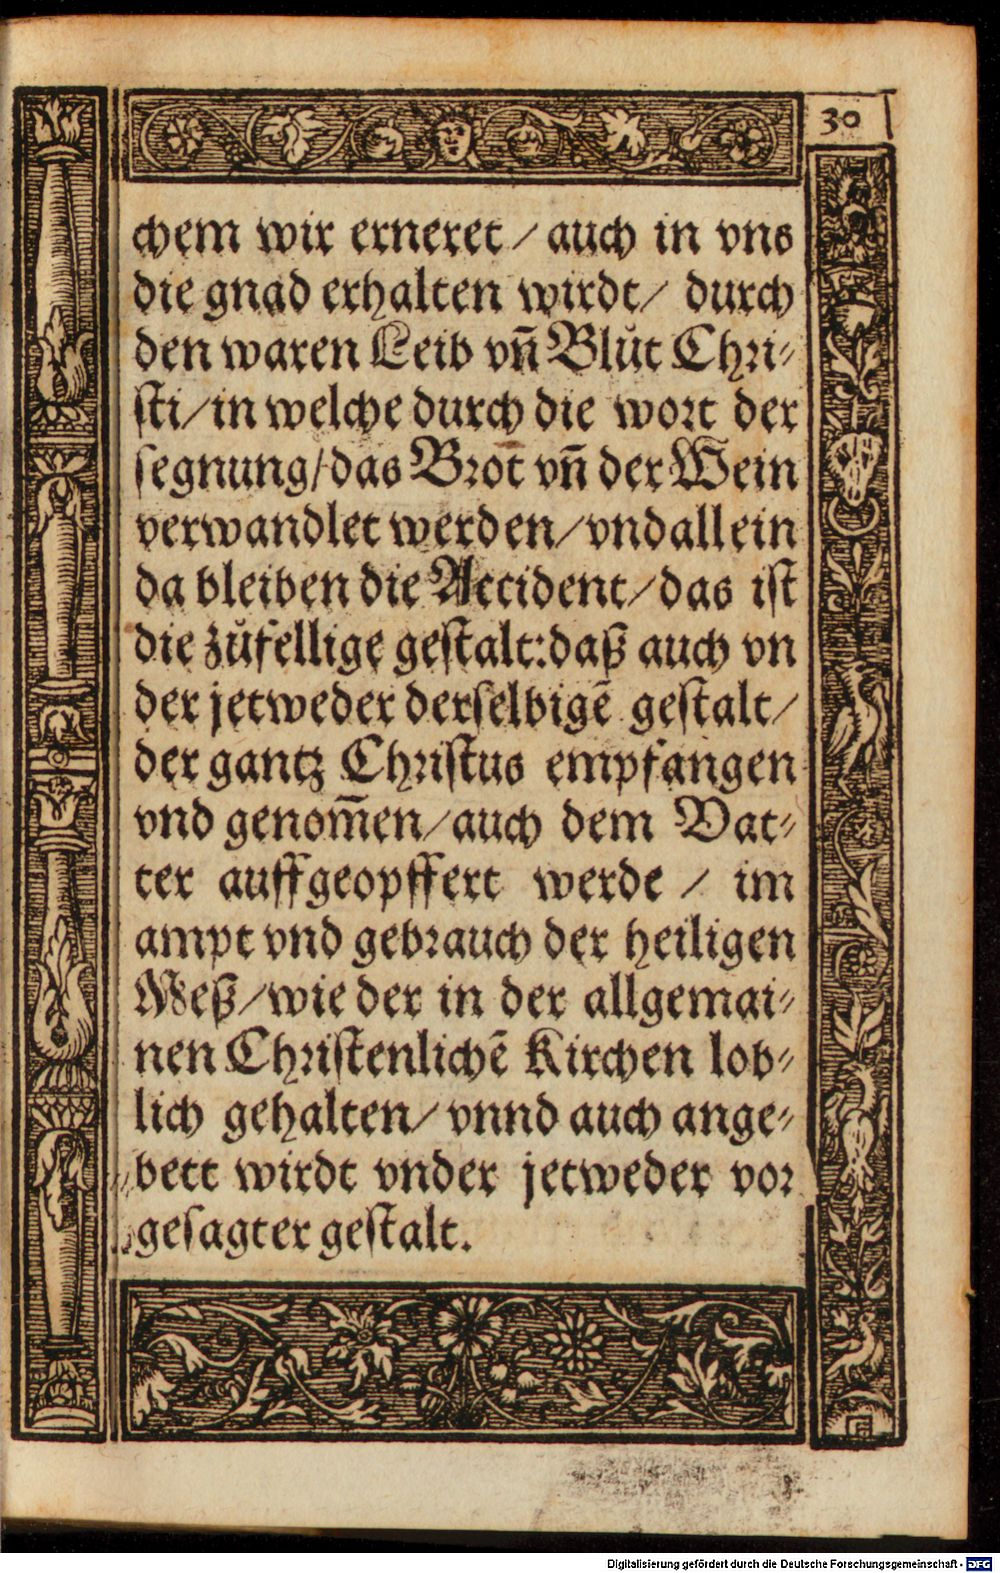 30
chem wir erneret / auch in vns
die gnad erhalten wirdt / durch
den waren Leib vñ Blůt Chri⸗
sti / in welche durch die wort der
segnung / das Brot vñ der Wein
verwandlet werden / vnd allein
da bleiben die Accident / das ist
die zůfellige gestalt: daß auch vn
der jetweder derselbigẽ gestalt /
der gantz Christus empfangen
vnd genom̃en / auch dem Vat⸗
ter auffgeopffert werde / im
ampt vnd gebrauch der heiligen
Meß / wie der in der allgemai⸗
nen Christenlichẽ Kirchen lob⸗
lich gehalten / vnnd auch ange⸗
bett wirdt vnder jetweder vor
gesagter gestalt.
Digitalisierung gefördert durch die Deutsche Forschungsgemeinschaft - DFG